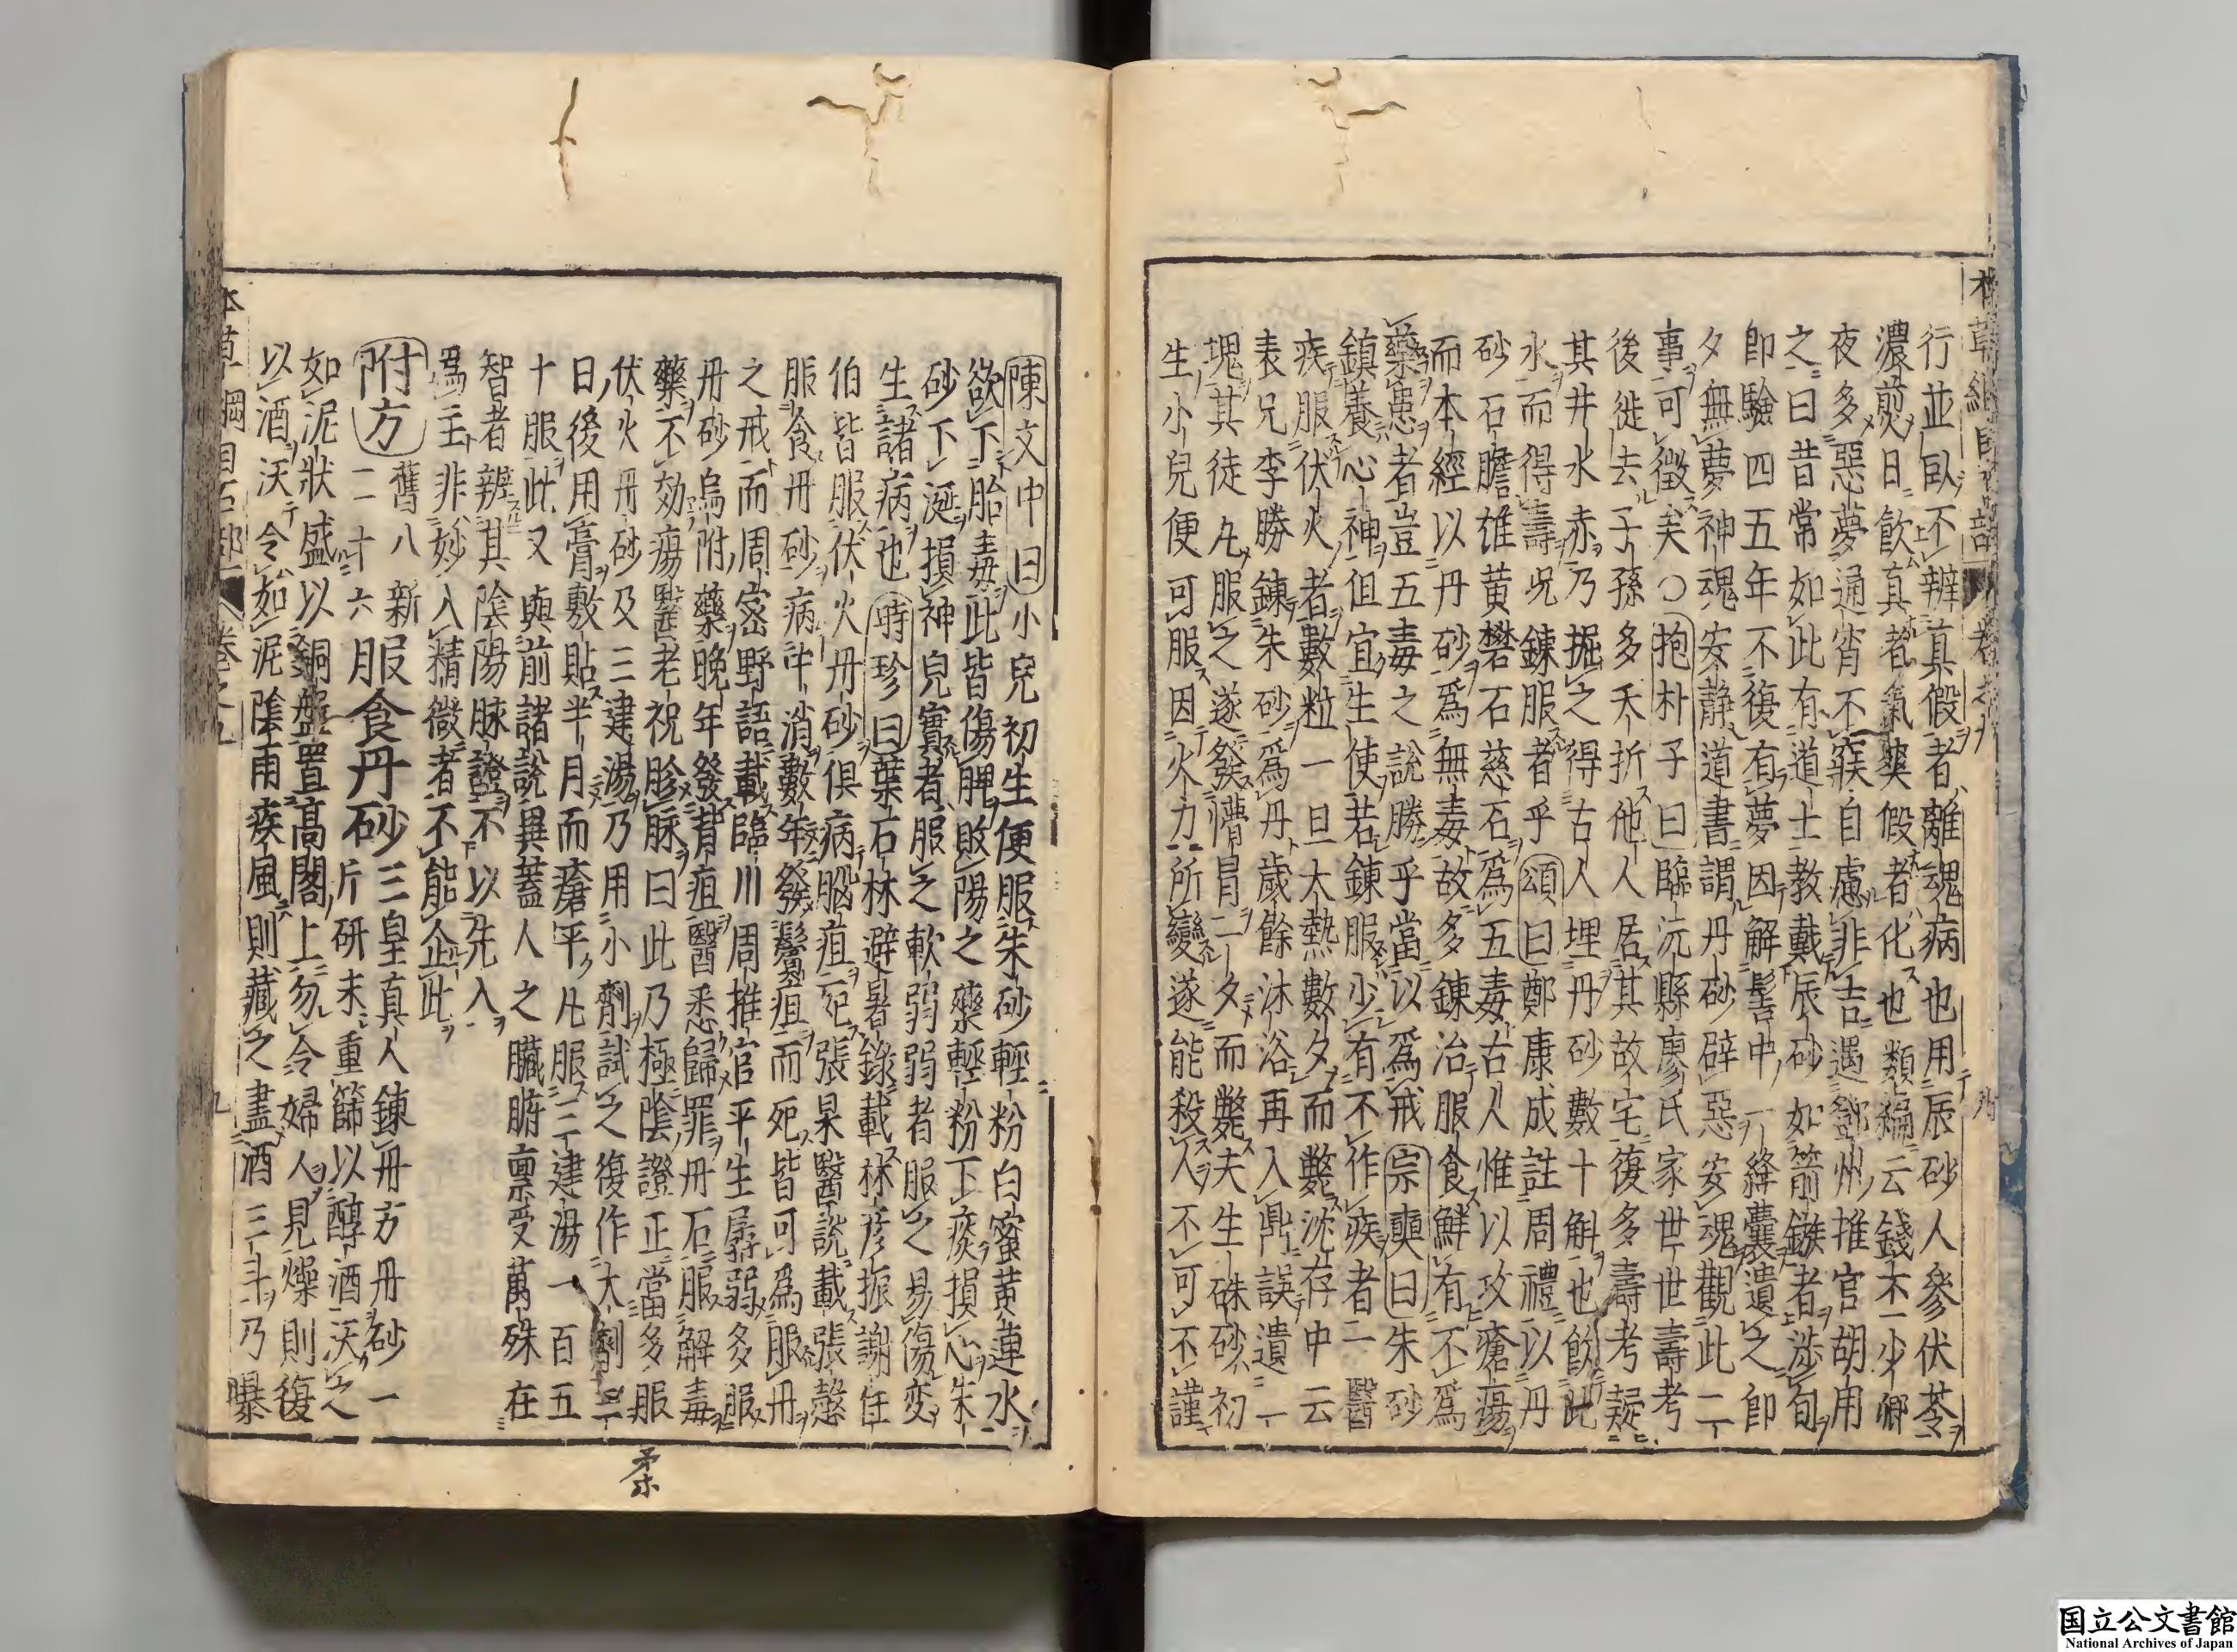 行並臥不辨真假者離魂病也用辰砂人參伏苓
濃煎日飲真者氣爽假者化也類編云錢丕少卿
夜多惡夢通宵不寐自慮非吉遇鄧州推官胡用
之曰昔常如此有道士教戴辰砂如箭鏃者渉旬
即驗四五年不復有夢因解髻中一絳囊遺之即
夕無夢神魂安静道書謂丹砂辟惡安魂觀此二
事可徴矣〇抱朴子曰臨沅縣廖氏家世世壽考
後徙去子孫多夭折他人居其故宅復多壽考疑
其井水赤乃掘之得古人埋丹砂數十斛也飲此
水而得壽况錬服者乎頌曰鄭康成註周禮以丹
砂石膽雄黄礬石慈石爲五毒古人惟以攻瘡瘍
而本經以丹砂爲無毒故多錬治服食鮮有不爲
藥患者豈五毒之說勝乎當以爲戒宗奭曰朱砂
鎮養心神但宜生使若錬服少有不作疾者一醫
疾服伏火者數粒一旦大熱數夕而斃沈存中云
表兄李勝錬朱砂爲丹歲餘沐浴再入鼎誤遺一
塊其徒丸服之遂發懵冒一夕而斃夫生硃砂初
生小兒便可服因火力所變遂能殺人不可不謹
陳文中曰小兒初生便服朱砂輕粉白蜜黄連水
欲下胎毒此皆傷脾敗陽之藥輕粉下痰損心朱
砂下涎損神兒實者服之軟弱弱者服之易傷変
生諸病也時珍曰葉石林避暑錄載林彦振謝任
伯皆服伏火丹砂俱病腦疽死張杲醫說載張慤
服食丹砂病中消數年發鬢疽而死皆可爲服丹
之戒而周密野語載臨川周推官平生孱弱多服
丹砂烏附藥晚年發背疽醫悉歸罪丹石服解毒
藥不効瘍醫老祝胗脉曰此乃極陰證正當多服
伏火丹砂及三建湯乃用小劑試之復作大劑三
日後用膏敷貼半月而瘡平凡服三建湯一百五
十服此又與前諸說異蓋人之臟腑禀受萬殊在
智者辨其陰陽脉證不以先入
爲主非妙入精微者不能企此
附方 舊八新二十六 服食丹砂 三皇真人錬丹方丹砂一
斤研末重篩以醇酒沃之
如泥狀盛以銅盤置高閣上勿令婦人見燥則復
以酒沃令如泥陰雨疾風則藏之盡酒三斗乃曝
九
柔
国立公文書館
National Archives of Japan